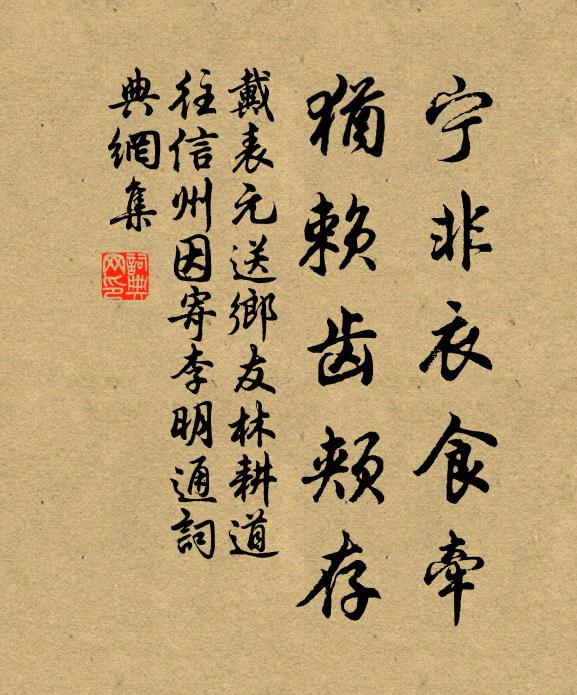 宁非衣食牵
犹赖齿颊存
戴表元送鄉友林耕道
往信州因寄李明通詞
典網集
詞典
网印